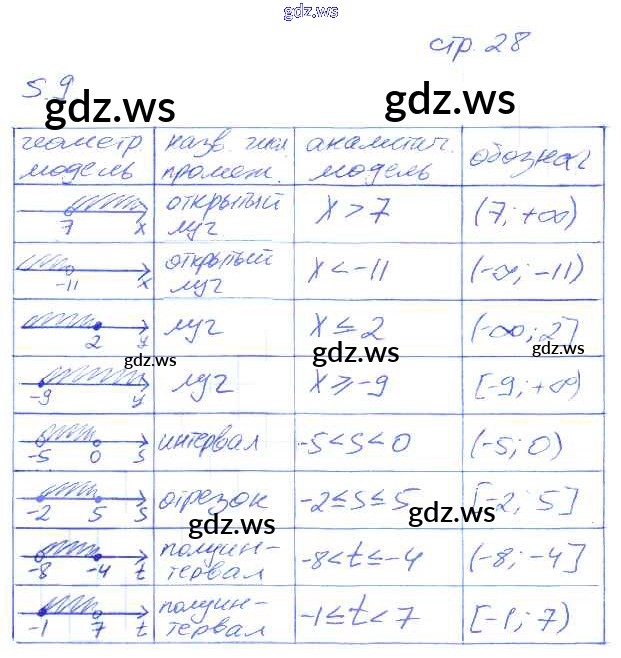 gdz.ws
стр. 28
5.9
gdz.ws
gdz.ws
геометр. назв. чис. аналитич. обознач
модель промеж. модель
7 x открытый луч x > 7 (7; +∞)
-11 x открытый луч x < -11 (-∞; -11)
2 y луч x ≤ 2 (-∞; 2]
gdz.ws gdz.ws gdz.ws
-9 y луч x ≥ -9 [-9; +∞)
-5 0 s интервал -5 < s < 0 (-5; 0)
-2 5 s отрезок -2 ≤ s ≤ 5 [-2; 5]
gdz.ws gdz.ws
-8 -4 t полуин-
тервал -8 < t ≤ -4 (-8; -4]
-1 7 t полуин-
тервал -1 ≤ t < 7 [-1; 7)
gdz.ws